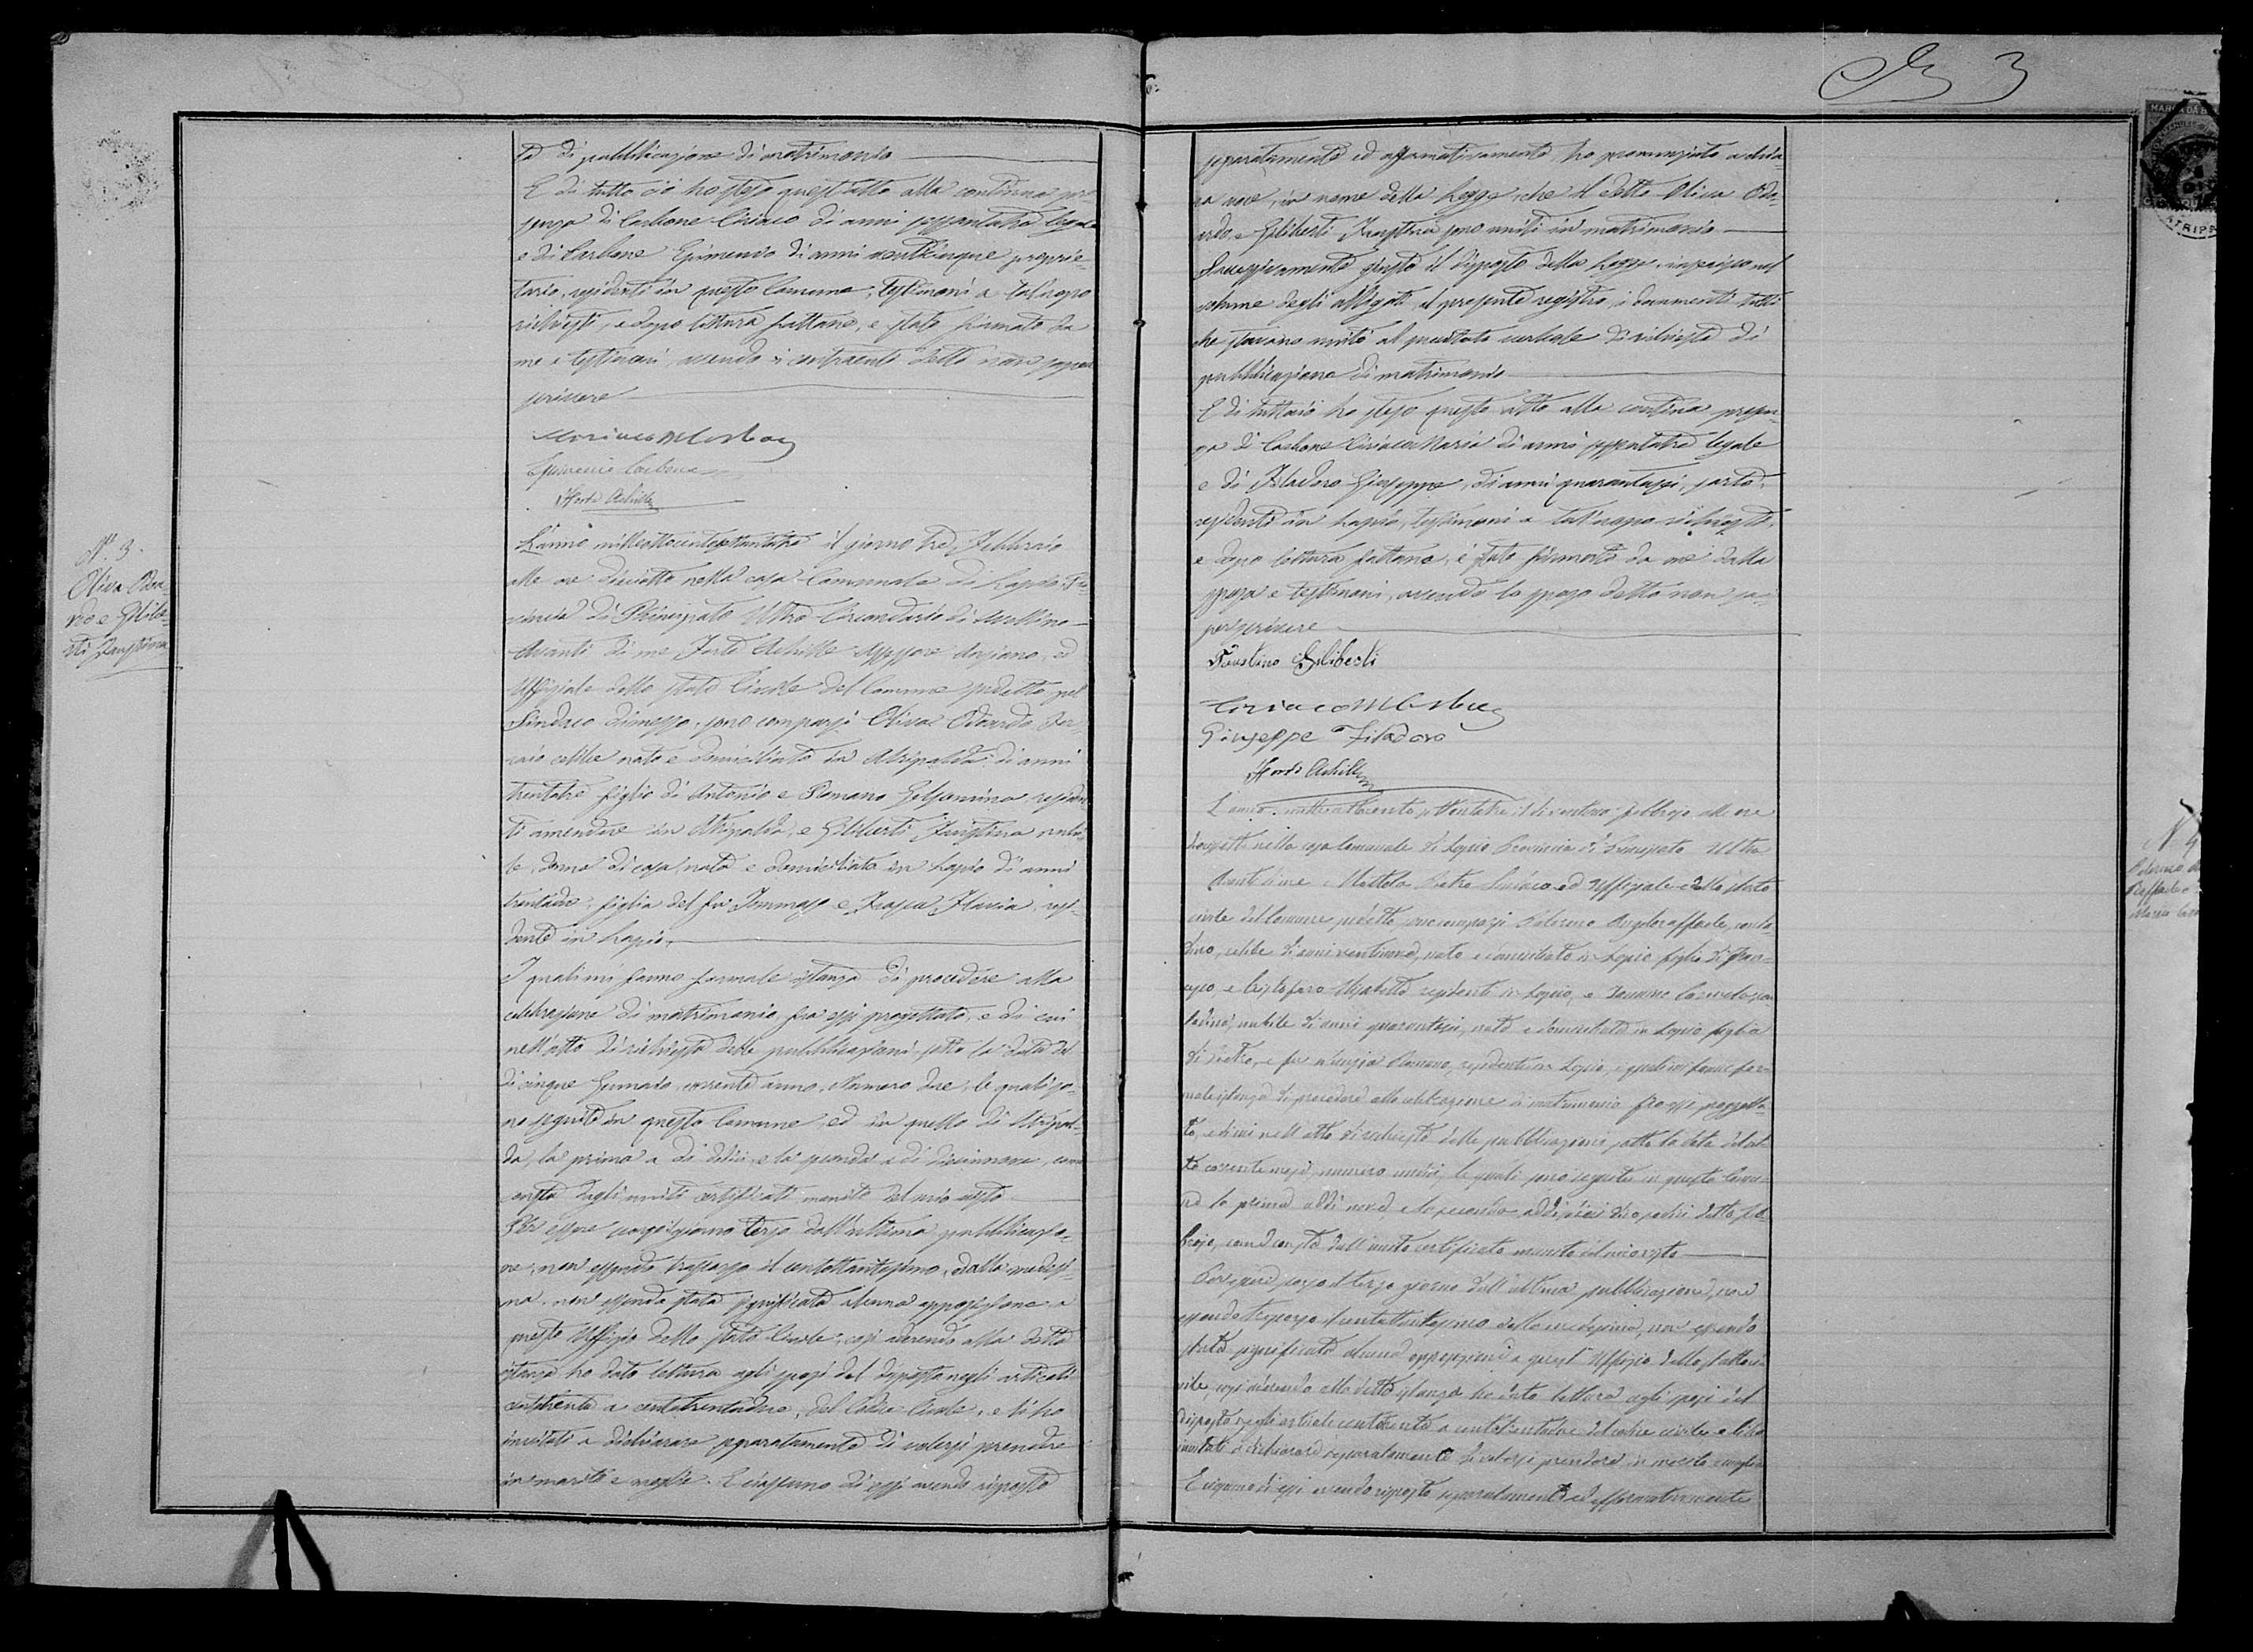 te di pubblicazione di matrimonio
E di tutto ciò ho steso quest'atto alla continua pre-
senza di Carbone Ciriaco di anni sessantatre legale
e di Carbone Epimenio di anni venticinque proprie-
tario, residenti in questo Comune, testimoni a tal'uopo
richiesti, e dopo lettura fattane, è stato firmato da
me e testimoni, avendo i contraenti detto non sapere
scrivere
Ciriaco M Carbone
Epimenio Carbone
Forte Achille
N. 3.
Oliva Odoa-
rdo e Giliber-
ti Faustina
L'anno milleottocentottantatre il giorno tre Febbraio
alle ore diciotto nella casa Comunale di Lapio Pro-
vincia di Principato Ultra Circondario di Avellino
Avanti di me Forte Achille Assessore Anziano, ed
Uffiziale dello Stato Civile del Comune sudetto pel
Sindaco dimesso, sono comparsi Oliva Odoardo Fer-
raio celibe nato e domiciliato in Atripalda di anni
trentatre figlio di Antonio e Romano Gelsomina residen-
ti amendue in Atripalda, e Giliberti Faustina nubi-
le, donna di casa, nata e domiciliata in Lapio di anni
trentadue, figlia del fu Tommaso e Flavia, resi-
dente in Lapio.
I quali mi fanno formale istanza di procedere alla
celebrazione di matrimonio fra essi progettato, e di cui
nell'atto di richiesta delle pubblicazioni sotto la data del
dì cinque Gennaio corrente anno, Numero due, le quali so-
no seguite in questo Comune, ed in quello di Atripal-
da, la prima a dì e la seconda a dì, come
consta dagli uniti certificati muniti del mio visto
Per essere scorso il giorno terzo dall'ultima pubblicazio-
ne, non essendo trascorso il centottantesimo dalla medesi-
ma, non essendo stata significata alcuna opposizione a
questo Uffizio dello Stato Civile, così aderendo alla detta
istanza ho dato lettura agli sposi del disposto negli articoli
centotrenta a centotrentadue, del Codice Civile, e li ho
invitati a dichiarare separatamente di volersi prendere
in marito e moglie. E ciascuno di essi avendo risposto
3
separatamente ed affermativamente ho pronunziato a chia-
ra voce, in nome della Legge, che il detto Oliva Odo-
ardo, e Giliberti Faustina sono uniti in matrimonio
Successivamente giusta il disposto della Legge, inserisco nel
volume degli allegati al presente registro, i documenti tutti
che stavano uniti al precitato verbale di richiesta di
pubblicazione di matrimonio
E di tuttociò ho steso questo atto alla continua presen-
za di Carbone Ciriaco Maria di anni sessantatre legale
e di Filadoro Giuseppe, di anni quarantasei, sarto,
residenti in Lapio, testimoni a tal'uopo richiesti,
e dopo lettura fattane, è stato firmato da me dalla
sposa e testimoni, avendo lo sposo detto non sa-
per scrivere
Faustina Giliberti
Ciriaco M Carbone
Giuseppe Filadoro
Forte Achille
N. 4
Raffaele
L'anno milleottocentottantatre il dì ventuno Febbrajo alle ore
diciasette nella casa Comunale di Lapio Provincia di Principato Ultra
Avanti di me Pietro Sindaco ed Uffiziale dello Stato
civile del Comune sudetto, sono comparsi Angeloraffaele, conta-
dino, celibe di anni ventinove, nato e domiciliato in Lapio figlio di Fran-
cesco, e Cristofaro Elisabetta residenti in Lapio, e Carmela con-
tadina, nubile di anni quarantasei, nata e domiciliata in Lapio figlia
di Pietro, e fu Romano, residenti in Lapio, i quali mi fanno for-
male istanza di procedere alla celebrazione di matrimonio fra essi progetta-
to, e di cui nell'atto di richiesta delle pubblicazioni sotto la data del
corrente mese, numero undici, le quali sono seguite in questo Comu-
ne la prima a dì e la seconda a dì detto Feb-
brajo, come consta dall'unito certificato munito del mio visto
Per essere scorso il terzo giorno dall'ultima pubblicazione, non
essendo trascorso il centottantesimo dalla medesima, non essendo
stata significata alcuna opposizione a quest'Uffizio dello Stato ci-
vile, così aderendo alla detta istanza ho dato lettura agli sposi del
disposto negli articoli centotrenta a centotrentadue del codice civile e li ho
invitati a dichiarare separatamente di volersi prendere in marito e moglie
E ciascuno di essi avendo risposto separatamente ed affermativamente